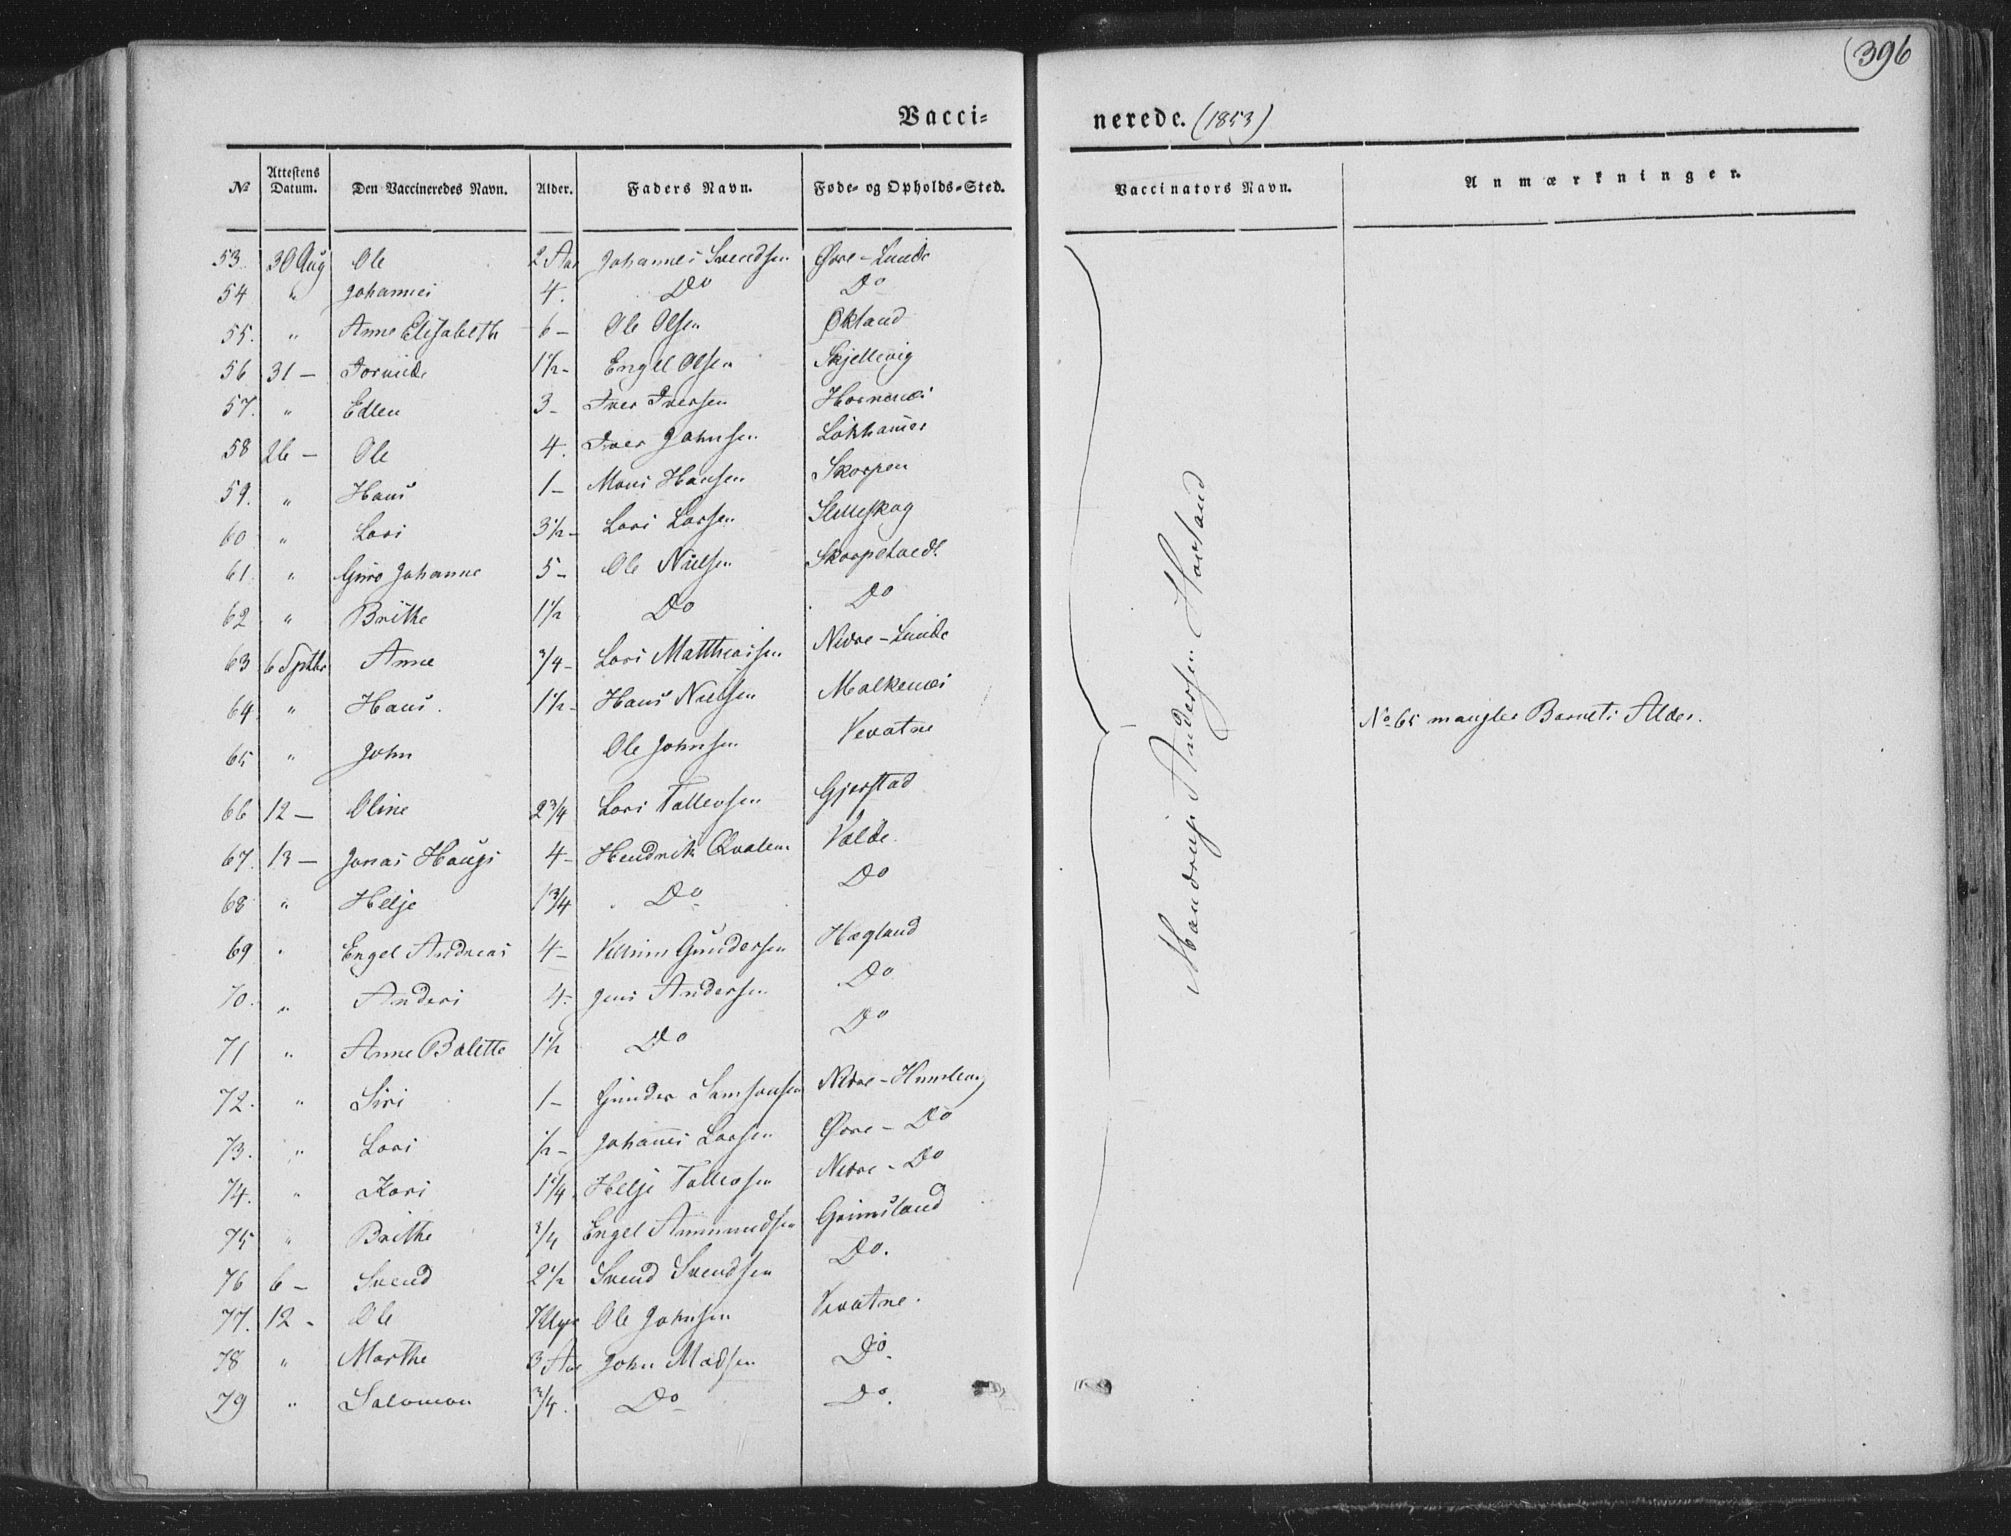 396
Vacci= nerede. (1853)
No Attestens Datum. Den Vaccineredes Navn. Alder. Faders Navn. Føde= og Opholds=Sted. Vaccinators Navn. Anmærkninger.
53. 30 Aug Ole 2 Aar Johannes Svendsen Øvre-Lunde
54 " Johannes 4. Do Do
55. " Anne Elisabeth 6 - Ole Olsen Økland
56 31 - 1½ - Engel Olsen Skjellevig
57. " Edlen 3 - Iver Iversen Hornenes
58 26 - Ole 4. Iver Johnsen Lökhamer
59. " Hans 1 - Mons Hansen Skorpen
60 " Lars 3½ - Lars Larsen
61. " Guro Johanne 5 - Ole Nielsen
62 " Brithe 1½ Do Do
63 6 Sptbr Anne ¾ - Lars Matthiassen Nedre-Lunde
64. " Hans. 1½ - Hans Nielsen Malkenes
65 " John Ole Johnsen Vevatne
66 12 - Oline 2¾ Lars Tollevsen Gjerstad
67. 13 - Jonas Haugs 4 - Hendrik Qvalen Valde.
68 " Helje 1¾ Do Do
69 " Engel Andreas 4 - Gundersen Hægland
70. " Anders 4 - Jens Andersen Do
71 " Anne Bolette 1½ Do Do
72. " Siri 1 - Gunder Samsonsen Nedre-Humlevig
73. " Lars ½ - Johannes Larsen Øvre - Do
74. " Kari 1¼ Helje Tollevsen Nedre - Do
75 " Brithe ¾ Engel Ammundsen Grimsland
76 6 - Svend 2½ Svend Svendsen Do.
77. 12 - Ole 7 Uger Ole Johnsen Vevatne.
78 " Marthe 3 Aar John Madsen Do.
79 " Salomon ¾. Do Do.
Mandrup Andersen Hovland
No 65 mangler Barnets Alder.